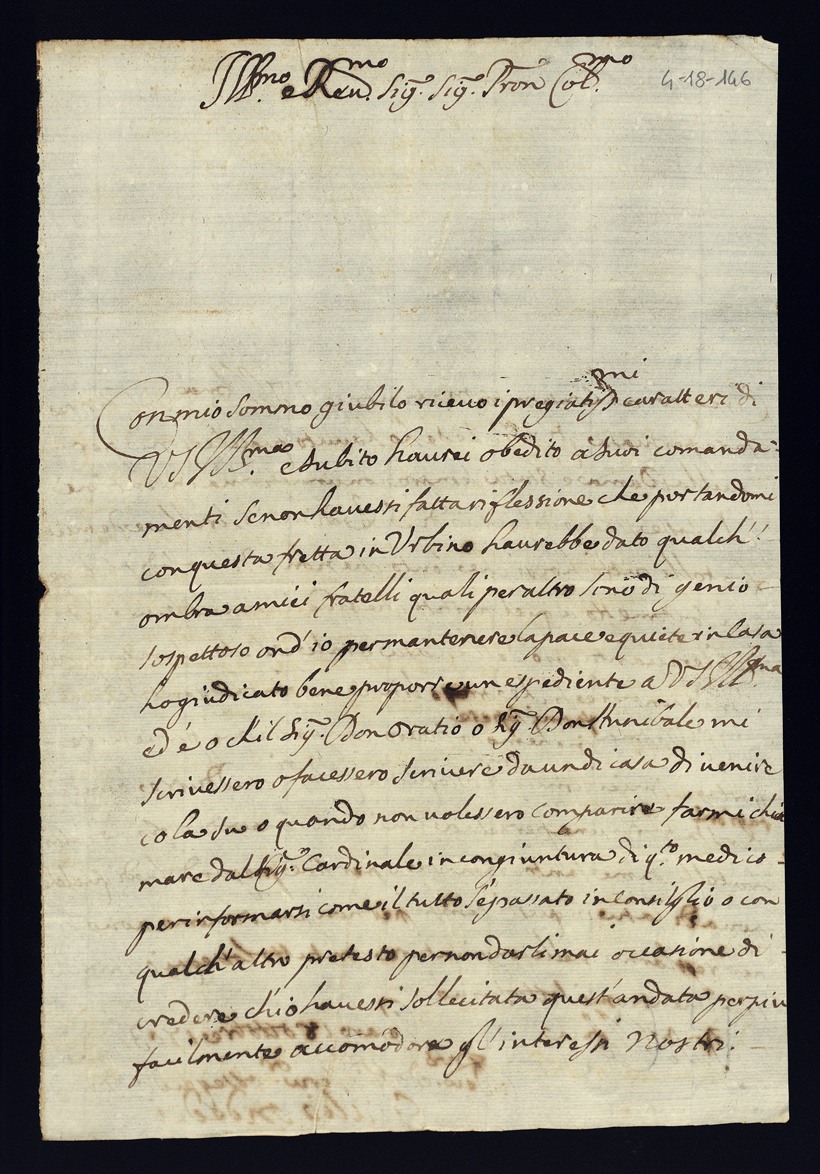 Ill.mo e Reu.mo Sig.r Sig.r Pron Col.mo
4-18-146
Con mio sommo giubilo riceuo i pregiatiss.mi caratteri di
VS Ill.ma e subito haurei obedito a suoi comanda-
menti se non hauessi fatta riflessione che portandomi
con questa fretta in Vrbino haurebbe dato qualch'
ombra a miei fratelli quali per altro sono di genio
sospettoso ond'io per mantenere la pace e quiete in Casa
ho giudicato bene proporre un espediente a VS Ill.ma
ed é o ch'il Sig.r Don Oratio o Sig.r Don Annibale mi
scriuessero o facessero scriuere da un di casa di venire
co la su o quando non uolessero comparire farmi chia
mare dal Sig.r Cardinale in congiuntura di q.to medico
per informarsi come il tutto s'é passato in Consiglio o con
qualch'altro pretesto per non darli mai occasione di
credere ch'io hauessi sollecitata quest'andata per piu
facilmente accomodare gl'interessi nostri.